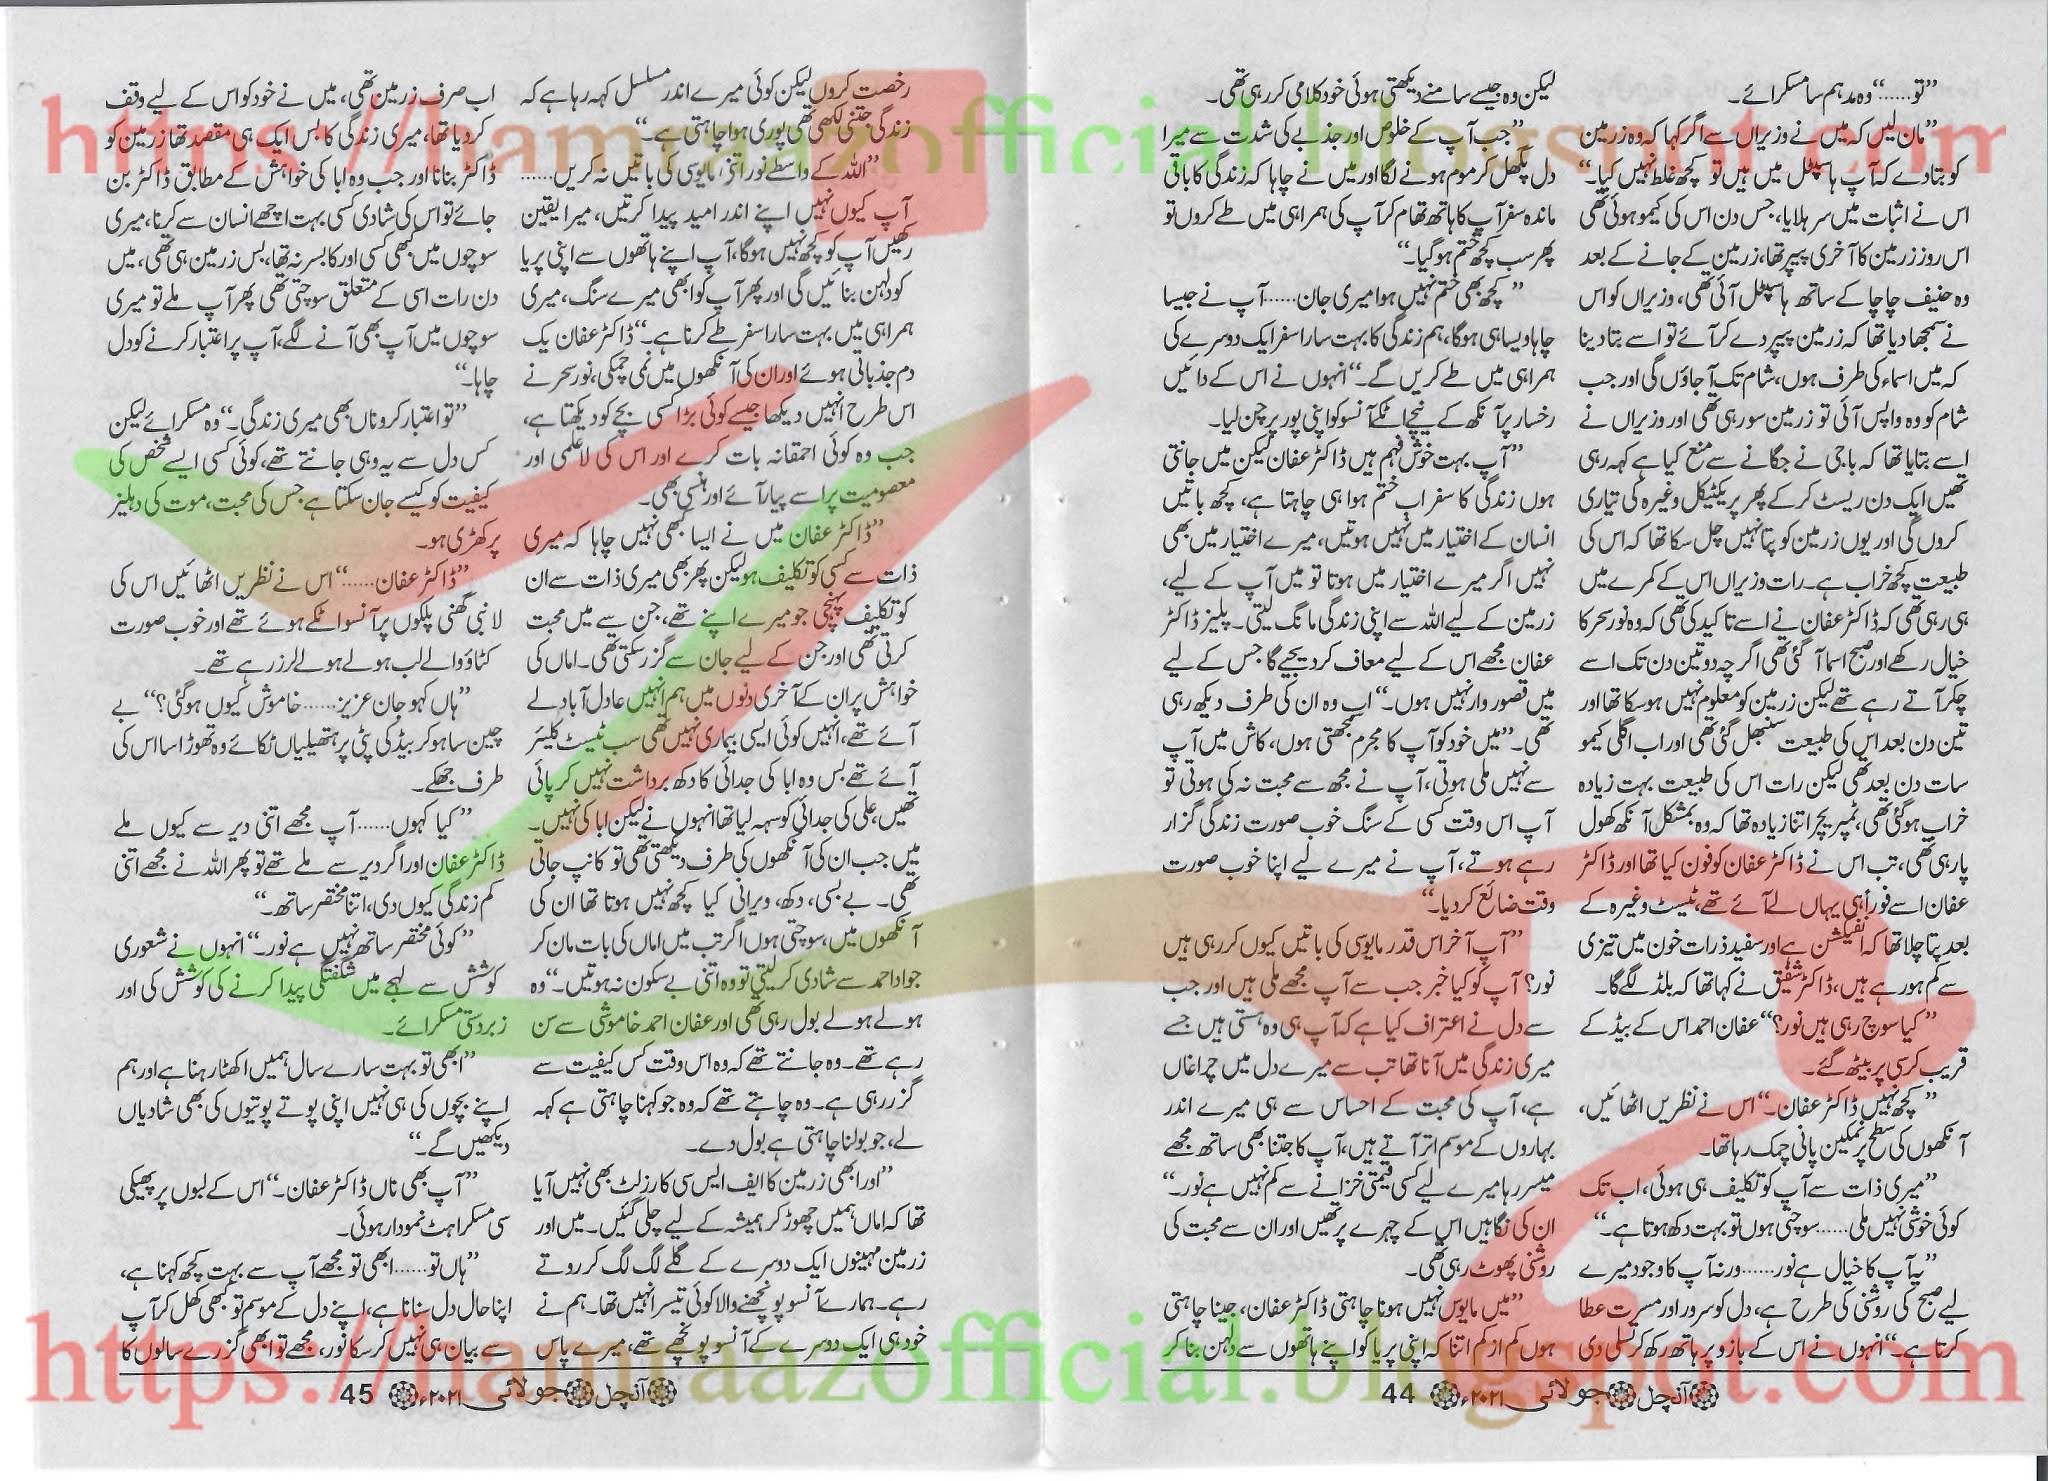 ”تو......“ وہ مدہم سا مسکرائے۔
”مان لیں کہ میں نے وزیراں سے اگر کہا کہ وہ زرمین
کو بتادے کہ آپ ہاسپٹل میں ہیں تو کچھ غلط نہیں کیا۔“
اس نے اثبات میں سر ہلایا، جس دن اس کی کیمو ہوئی تھی
اس روز زرمین کا آخری پیپر تھا، زرمین کے جانے کے بعد
وہ حنیف چاچا کے ساتھ ہاسپٹل آئی تھی، وزیراں کو اس
نے سمجھا دیا تھا کہ زرمین پیپر دے کر آئے تو اسے بتا دینا
کہ میں اسماء کی طرف ہوں، شام تک آ جاؤں گی اور جب
شام کو وہ واپس آئی تو زرمین سو رہی تھی اور وزیراں نے
اسے بتایا تھا کہ باجی نے جگانے سے منع کیا ہے کہہ رہی
تھیں ایک دن ریسٹ کر کے پھر پریکٹیکل وغیرہ کی تیاری
کروں گی اور یوں زرمین کو پتا نہیں چل سکا تھا کہ اس کی
طبیعت کچھ خراب ہے۔ رات وزیراں اس کے کمرے میں
ہی رہی تھی کہ ڈاکٹر عفان نے اسے تاکید کی تھی کہ وہ نور سحر کا
خیال رکھے اور صبح اسما آ گئی تھی اگرچہ دو تین دن تک اسے
چکر آتے رہے تھے لیکن زرمین کو معلوم نہیں ہو سکا تھا اور
تین دن بعد اس کی طبیعت سنبھل گئی تھی اور اب اگلی کیمو
سات دن بعد تھی لیکن رات اس کی طبیعت بہت زیادہ
خراب ہو گئی تھی، ٹمپریچر اتنا زیادہ تھا کہ وہ بمشکل آنکھ کھول
پا رہی تھی، تب اس نے ڈاکٹر عفان کو فون کیا تھا اور ڈاکٹر
عفان اسے فوراً ہی یہاں لے آئے تھے، ٹیسٹ وغیرہ کے
بعد پتا چلا تھا کہ انفیکشن ہے اور سفید ذرات خون میں تیزی
سے کم ہو رہے ہیں، ڈاکٹر شفیق نے کہا تھا کہ بلڈ لگے گا۔
”کیا سوچ رہی ہیں نور؟“ عفان احمد اس کے بیڈ کے
قریب کرسی پر بیٹھ گئے۔
”کچھ نہیں ڈاکٹر عفان۔“ اس نے نظریں اٹھائیں،
آنکھوں کی سطح پر نمکین پانی چمک رہا تھا۔
”میری ذات سے آپ کو تکلیف ہی ہوئی، اب تک
کوئی خوشی نہیں ملی...... سوچتی ہوں تو بہت دکھ ہوتا ہے۔“
”یہ آپ کا خیال ہے نور...... ورنہ آپ کا وجود میرے
لیے صبح کی روشنی کی طرح ہے، دل کو سرور اور مسرت عطا
کرتا ہے۔“ انہوں نے اس کے بازو پر ہاتھ رکھ کر تسلی دی
لیکن وہ جیسے سامنے دیکھتی ہوئی خود کلامی کر رہی تھی۔
”جب آپ کے خلوص اور جذبے کی شدت سے میرا
دل پگھل کر موم ہونے لگا اور میں نے چاہا کہ زندگی کا باقی
ماندہ سفر آپ کا ہاتھ تھام کر آپ کی ہمراہی میں طے کروں تو
پھر سب کچھ ختم ہو گیا۔“
”کچھ بھی ختم نہیں ہوا میری جان...... آپ نے جیسا
چاہا ویسا ہی ہوگا، ہم زندگی کا بہت سارا سفر ایک دوسرے کی
ہمراہی میں طے کریں گے۔“ انہوں نے اس کے دائیں
رخسار پر آنکھ کے نیچے اٹکے آنسو کو اپنی پور پر چن لیا۔
”آپ بہت خوش فہم ہیں ڈاکٹر عفان لیکن میں جانتی
ہوں زندگی کا سفر اب ختم ہوا ہی چاہتا ہے، کچھ باتیں
انسان کے اختیار میں نہیں ہوتیں، میرے اختیار میں بھی
نہیں اگر میرے اختیار میں ہوتا تو میں آپ کے لیے،
زرمین کے لیے اللہ سے اپنی زندگی مانگ لیتی۔ پلیز ڈاکٹر
عفان مجھے اس کے لیے معاف کر دیجیے گا جس کے لیے
میں قصوروار نہیں ہوں۔“ اب وہ ان کی طرف دیکھ رہی
تھی۔ ”میں خود کو آپ کا مجرم سمجھتی ہوں، کاش میں آپ
سے نہیں ملی ہوتی، آپ نے مجھ سے محبت نہ کی ہوتی تو
آپ اس وقت کسی کے سنگ خوب صورت زندگی گزار
رہے ہوتے، آپ نے میرے لیے اپنا خوب صورت
وقت ضائع کر دیا۔“
”آپ آخر اس قدر مایوسی کی باتیں کیوں کر رہی ہیں
نور؟ آپ کو کیا خبر جب سے آپ مجھے ملی ہیں اور جب
سے دل نے اعتراف کیا ہے کہ آپ ہی وہ ہستی ہیں جسے
میری زندگی میں آنا تھا تب سے میرے دل میں چراغاں
ہے، آپ کی محبت کے احساس سے ہی میرے اندر
بہاروں کے موسم اتر آتے ہیں، آپ کا جتنا بھی ساتھ مجھے
میسر رہا میرے لیے کسی قیمتی خزانے سے کم نہیں ہے نور۔“
ان کی نگاہیں اس کے چہرے پر تھیں اور ان سے محبت کی
روشنی پھوٹ رہی تھی۔
”میں مایوس نہیں ہونا چاہتی ڈاکٹر عفان، جینا چاہتی
ہوں کم از کم اتنا کہ اپنی پریا کو اپنے ہاتھوں سے دلہن بنا کر
آنچل جولائی ۲۰۲۱ء 44
رخصت کروں لیکن کوئی میرے اندر مسلسل کہہ رہا ہے کہ
زندگی جتنی لکھی تھی پوری ہوا چاہتی ہے۔“
”اللہ کے واسطے نور اتنی مایوسی کی باتیں نہ کریں......
آپ کیوں نہیں اپنے اندر امید پیدا کرتیں، میرا یقین
رکھیں آپ کو کچھ نہیں ہوگا، آپ اپنے ہاتھوں سے اپنی پریا
کو دلہن بنائیں گی اور پھر آپ کو ابھی میرے سنگ، میری
ہمراہی میں بہت سارا سفر طے کرنا ہے۔“ ڈاکٹر عفان یک
دم جذباتی ہوئے اور ان کی آنکھوں میں نمی چمکی، نور سحر نے
اس طرح انہیں دیکھا جیسے کوئی بڑا کسی بچے کو دیکھتا ہے،
جب وہ کوئی احمقانہ بات کرے اور اس کی لاعلمی اور
معصومیت پر اسے پیار آئے اور ہنسی بھی۔
”ڈاکٹر عفان میں نے ایسا کبھی نہیں چاہا کہ میری
ذات سے کسی کو تکلیف ہو لیکن پھر بھی میری ذات سے ان
کو تکلیف پہنچی جو میرے اپنے تھے، جن سے میں محبت
کرتی تھی اور جن کے لیے جان سے گزر سکتی تھی۔ اماں کی
خواہش پر ان کے آخری دنوں میں ہم انہیں عادل آباد لے
آئے تھے، انہیں کوئی ایسی بیماری نہیں تھی سب ٹیسٹ کلیئر
آئے تھے بس وہ ابا کی جدائی کا دکھ برداشت نہیں کر پائی
تھیں، علی کی جدائی کو سہہ لیا تھا انہوں نے لیکن ابا کی نہیں۔
میں جب ان کی آنکھوں کی طرف دیکھتی تھی تو کانپ جاتی
تھی۔ بے بسی، دکھ، ویرانی کیا کچھ نہیں ہوتا تھا ان کی
آنکھوں میں، سوچتی ہوں اگر تب میں اماں کی بات مان کر
جواد احمد سے شادی کر لیتی تو وہ اتنی بے سکون نہ ہوتیں۔“ وہ
ہولے ہولے بول رہی تھی اور عفان احمد خاموشی سے سن
رہے تھے۔ وہ جانتے تھے کہ وہ اس وقت کس کیفیت سے
گزر رہی ہے۔ وہ چاہتے تھے کہ وہ جو کہنا چاہتی ہے کہہ
لے، جو بولنا چاہتی ہے بول دے۔
”اور ابھی زرمین کا ایف ایس سی کا رزلٹ بھی نہیں آیا
تھا کہ اماں ہمیں چھوڑ کر ہمیشہ کے لیے چلی گئیں۔ میں اور
زرمین مہینوں ایک دوسرے کے گلے لگ لگ کر روتے
رہے۔ ہمارے آنسو پونچھنے والا کوئی تیسرا نہیں تھا۔ ہم نے
خود ہی ایک دوسرے کے آنسو پونچھے تھے، میرے پاس
اب صرف زرمین تھی، میں نے خود کو اس کے لیے وقف
کر دیا تھا، میری زندگی کا بس ایک ہی مقصد تھا زرمین کو
ڈاکٹر بنانا اور جب وہ ابا کی خواہش کے مطابق ڈاکٹر بن
جائے تو اس کی شادی کسی بہت اچھے انسان سے کرنا، میری
سوچوں میں کبھی کسی اور کا بسر نہ تھا، بس زرمین ہی تھی، میں
دن رات اسی کے متعلق سوچتی تھی پھر آپ ملے تو میری
سوچوں میں آپ بھی آنے لگے، آپ پر اعتبار کرنے کو دل
چاہا۔“
”تو اعتبار کرو ناں بھی میری زندگی۔“ وہ مسکرائے لیکن
کس دل سے یہ وہی جانتے تھے، کوئی کسی ایسے شخص کی
کیفیت کو کیسے جان سکتا ہے جس کی محبت، موت کی دہلیز
پر کھڑی ہو۔
”ڈاکٹر عفان......“ اس نے نظریں اٹھائیں اس کی
لانبی گھنی پلکوں پر آنسو اٹکے ہوئے تھے اور خوب صورت
کٹاؤ والے لب ہولے ہولے لرز رہے تھے۔
”ہاں کہو جان عزیز...... خاموش کیوں ہو گئی؟“ بے
چین سا ہو کر بیڈ کی پٹی پر ہتھیلیاں ٹکائے وہ تھوڑا سا اس کی
طرف جھکے۔
”کیا کہوں...... آپ مجھے اتنی دیر سے کیوں ملے
ڈاکٹر عفان اور اگر دیر سے ملے تھے تو پھر اللہ نے مجھے اتنی
کم زندگی کیوں دی، اتنا مختصر ساتھ۔“
”کوئی مختصر ساتھ نہیں ہے نور۔“ انہوں نے شعوری
کوشش سے لہجے میں شگفتگی پیدا کرنے کی کوشش کی اور
زبردستی مسکرائے۔
”ابھی تو بہت سارے سال ہمیں اکھٹا رہنا ہے اور ہم
اپنے بچوں کی ہی نہیں اپنی پوتے پوتیوں کی بھی شادیاں
دیکھیں گے۔“
”آپ بھی ناں ڈاکٹر عفان۔“ اس کے لبوں پر پھیکی
سی مسکراہٹ نمودار ہوئی۔
”ہاں تو...... ابھی تو مجھے آپ سے بہت کچھ کہنا ہے،
اپنا حال دل سنانا ہے، اپنے دل کے موسم تو کبھی کھل کر آپ
سے بیان ہی نہیں کر سکا نور، مجھے تو ابھی گزرے سالوں کا
آنچل جولائی ۲۰۲۱ء 45
https://hamraazofficial.blogspot.com
https://hamraazofficial.blogspot.com